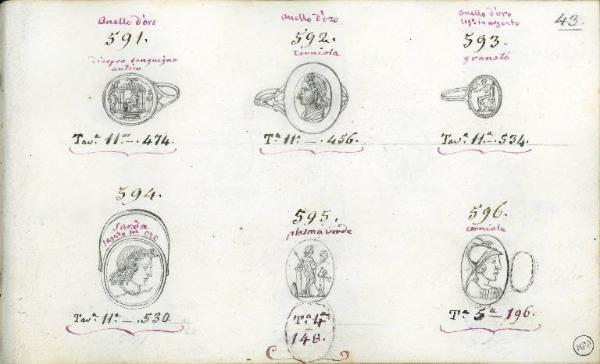 43.
Anello d'oro
591.
diaspro sanguigno
antico
Tav.ª 11.ª — . 474.
Anello d'oro
592.
Corniola
T.ª 11.ª — . 456.
Anello d'oro
leg.º in argento
593.
granato
Tav.ª 11.ª . 534.
594.
Sarda
legata in oro
Tav.ª 11.ª — . 530.
595.
plasma verde
T.ª 4.ª
148.
596.
corniola
T.ª 5.ª 196.